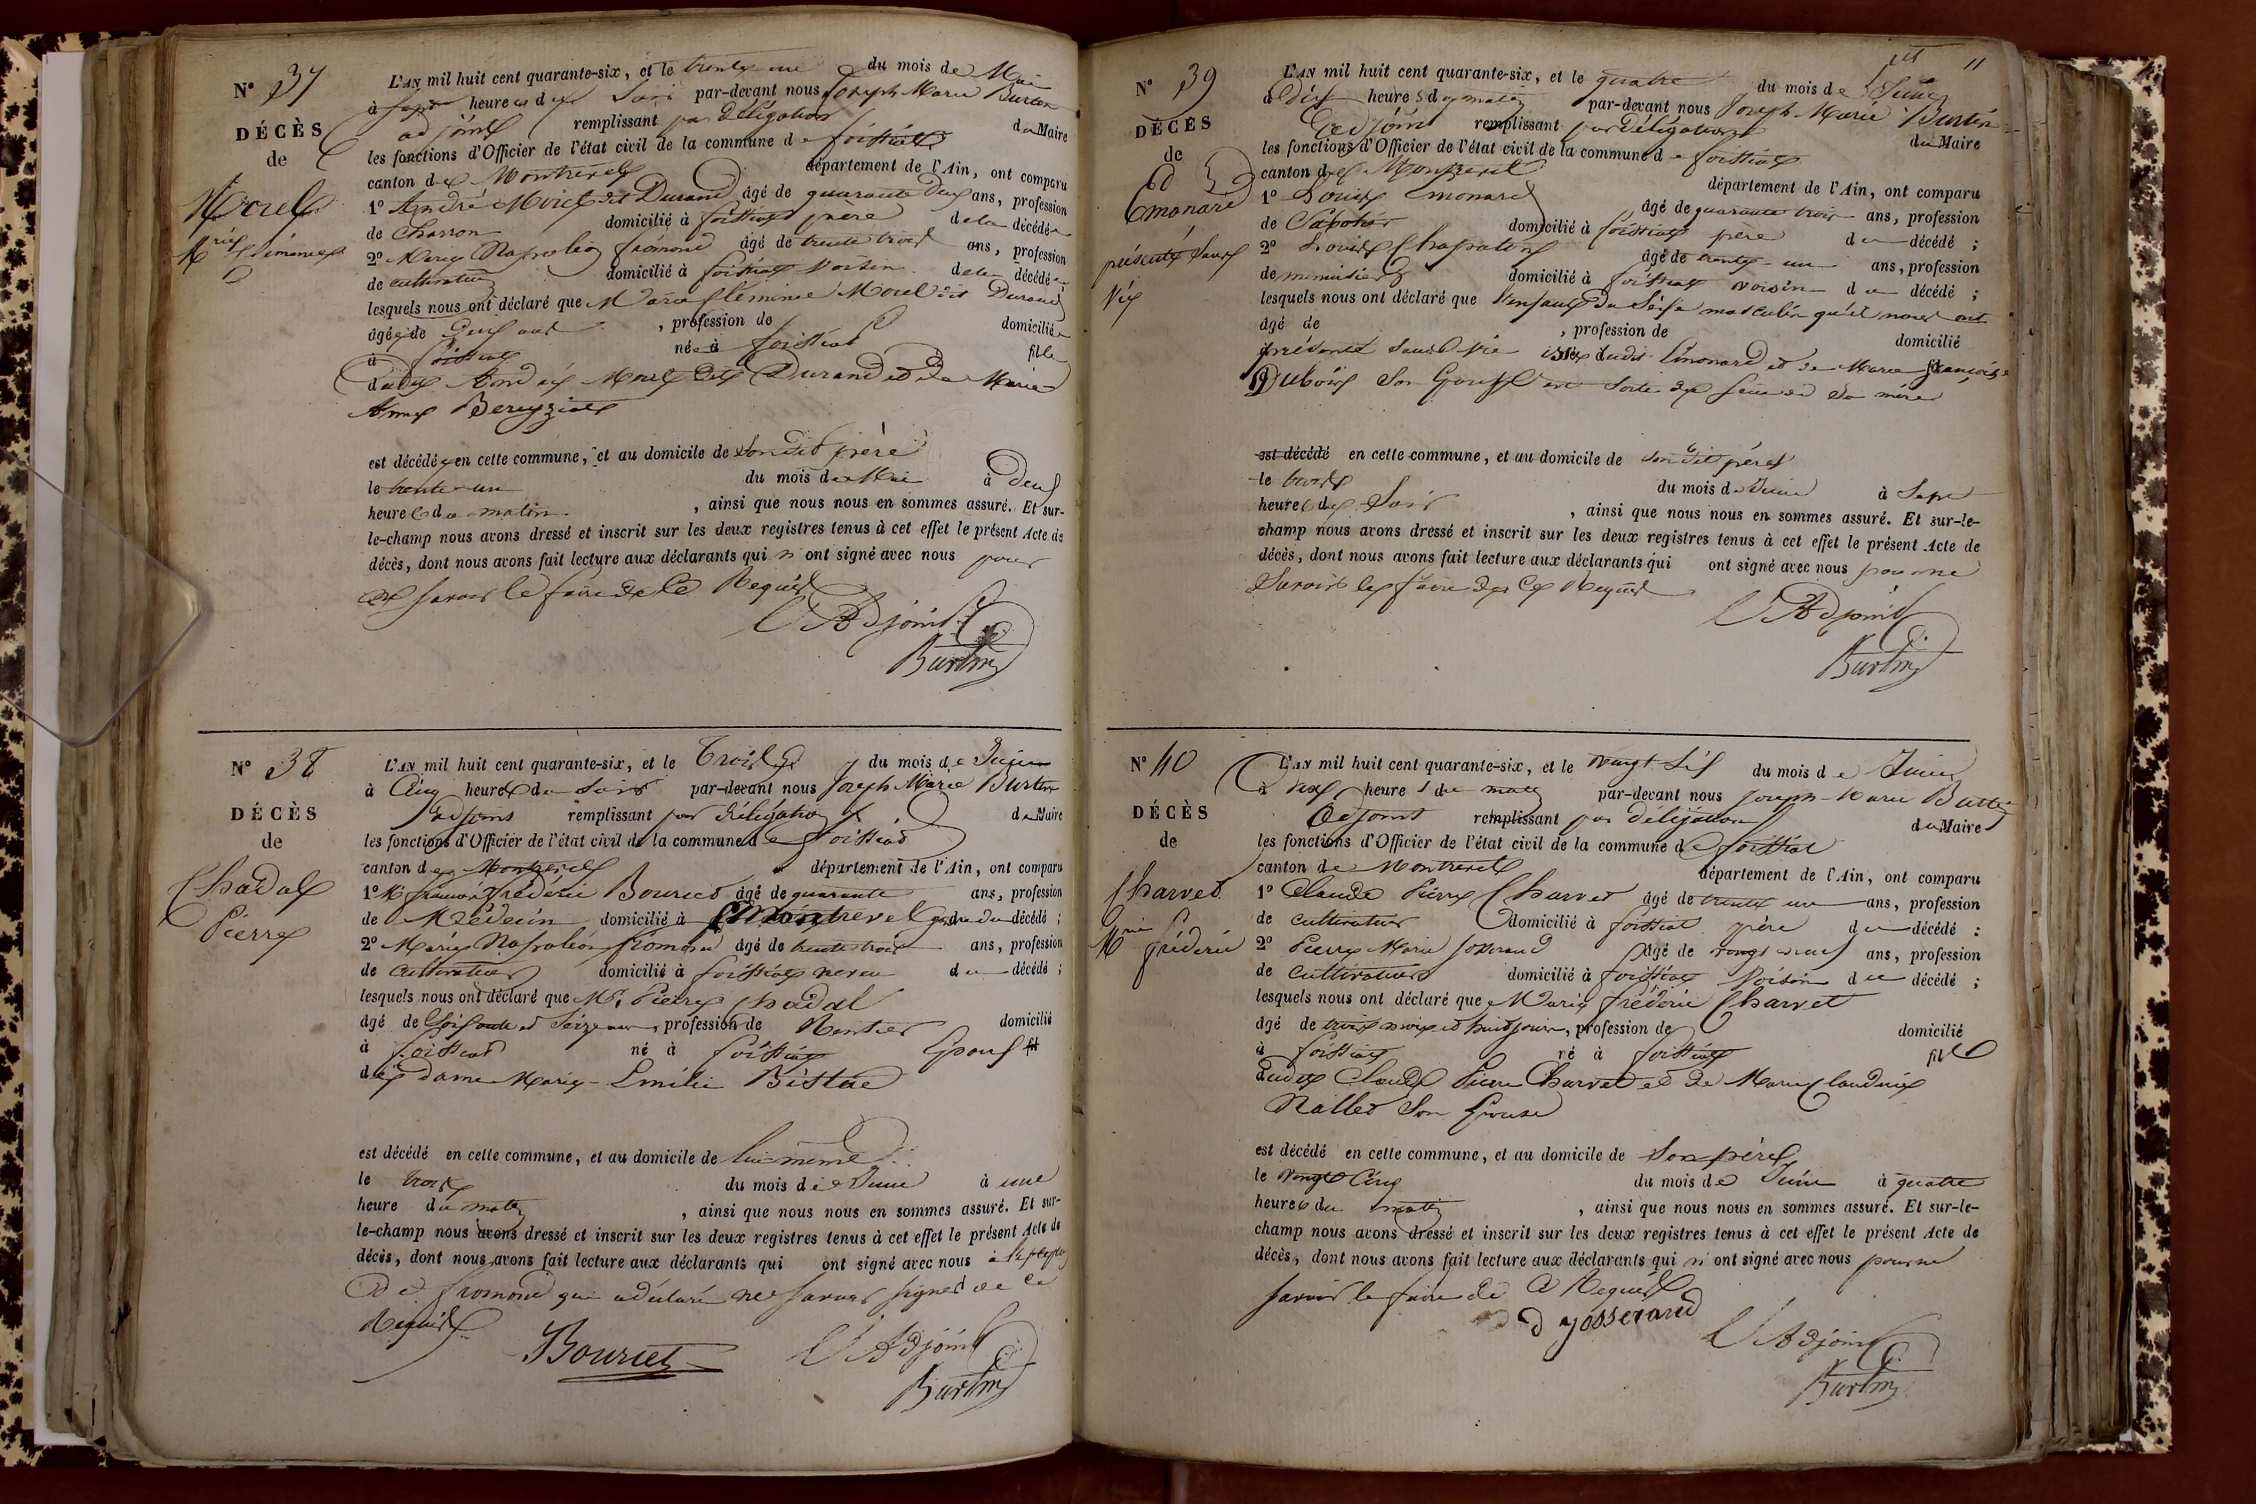 N° 37
DÉCÈS
de
Morel
Mrie Cléminee
L'AN mil huit cent quarante-six, et le trente un du mois de Mai
à sept heures du Soir par-devant nous Joseph Marie Burtin
adjoint remplissant par Délégation du Maire
les fonctions d'Officier de l'état civil de la commune de foissiat
canton de Montrevel département de l'Ain, ont comparu
1° André Morel dit Durand âgé de quarante Deux ans, profession
de Charron domicilié à foissiat père de la décédée
2° Marie Napoléon fromond âgé de trente trois ans, profession
de cultivateur domicilié à foissiat Voisin de la décédée
lesquels nous ont déclaré que Marie Cléminee Morel dit Durand
âgée de Deux ans , profession de domiciliée
à foissiat née à foissiat fille
dudit André Morel dit Durand et de Marie
Anne Bereyziat
est décédée en cette commune, et au domicile de Son dit père
le trente-un du mois de Mai à Deux
heures du matin , ainsi que nous nous en sommes assuré. Et sur-
le-champ nous avons dressé et inscrit sur les deux registres tenus à cet effet le présent Acte de
décès, dont nous avons fait lecture aux déclarants qui n'ont signé avec nous pour
ne savoir le faire de ce Requis
L'Adjoint
Burtin
N° 38
DÉCÈS
de
Chadal
Pierre
L'AN mil huit cent quarante-six, et le Trois du mois de Juin
à Cinq heures du Soir par-devant nous Joseph Marie Burtin
adjoint remplissant par Délégation du Maire
les fonctions d'Officier de l'état civil de la commune de foissiat
canton de Montrevel département de l'Ain, ont comparu
1° Mr françois frédéric Bouriet âgé de quarante ans, profession
de Médecin domicilié à Montrevel gendre du décédé ;
2° Marie Napoléon fromond âgé de trente trois ans, profession
de Cultivateur domicilié à foissiat neveu du décédé ;
lesquels nous ont déclaré que Mr. Pierre Chadal
âgé de Soixante et Seize ans, profession de Rentier domicilié
à foissiat né à foissiat Epoux fil
de dame Marie-Emilie Bistue
est décédé en cette commune, et au domicile de lui-même
le trois du mois de Juin à une
heure du matin , ainsi que nous nous en sommes assuré. Et sur-
le-champ nous avons dressé et inscrit sur les deux registres tenus à cet effet le présent Acte de
décès, dont nous avons fait lecture aux déclarants qui ont signé avec nous à l'exception
de fromond qui a déclaré ne savoir signer de ce
Requis
Bouriet L'Adjoint
Burtin
11
N° 39
DÉCÈS
de
Emonard
présenté Sans
Vie
L'AN mil huit cent quarante-six, et le quatre du mois de Juin
à Dix heures du matin par-devant nous Joseph Marie Burtin
Adjoint remplissant par Délégation du Maire
les fonctions d'Officier de l'état civil de la commune de foissiat
canton de Montrevel département de l'Ain, ont comparu
1° Louis Emonard âgé de quarante trois ans, profession
de Sabotier domicilié à foissiat père du décédé ;
2° Louis Chapaton âgé de trente-un ans, profession
de menuisier domicilié à foissiat voisin du décédé ;
lesquels nous ont déclaré que l'enfant du Sexe masculin qu'il nous ont
âgé de , profession de domicilié
présenté Sans Vie issu dudit Emonard et de Marie françoise
Dubois Son Epouse est Sorti du Sein de Sa mère
est décédé en cette commune, et au domicile de Son dit père
le trois du mois de Juin à Sept
heures du Soir , ainsi que nous nous en sommes assuré. Et sur-le-
champ nous avons dressé et inscrit sur les deux registres tenus à cet effet le présent Acte de
décès, dont nous avons fait lecture aux déclarants qui ont signé avec nous pour ne
Savoir le faire de ce Requis
L'Adjoint
Burtin
N° 40
DÉCÈS
de
Charvet
Mrie frédéric
L'AN mil huit cent quarante-six, et le vingt Six du mois de Juin
à Dix heures du matin par-devant nous Joseph-Marie Burtin
Adjoint remplissant par Délégation du Maire
les fonctions d'Officier de l'état civil de la commune de foissiat
canton de Montrevel département de l'Ain, ont comparu
1° Claude Pierre Charvet âgé de trente un ans, profession
de cultivateur domicilié à foissiat père du décédé :
2° Pierre Marie Josserand âgé de vingt neuf ans, profession
de Cultivateur domicilié à foissiat Voisin du décédé ;
lesquels nous ont déclaré que Marie frédéric Charvet
âgé de trois mois et huit jours, profession de domicilié
à foissiat né à foissiat fils
dudit Claude Pierre Charvet et de Marie Claudine
Nallet Son Epouse
est décédé en cette commune, et au domicile de Son père
le Vingt Cinq du mois de Juin à quatre
heures du matin , ainsi que nous nous en sommes assuré. Et sur-le-
champ nous avons dressé et inscrit sur les deux registres tenus à cet effet le présent Acte de
décès, dont nous avons fait lecture aux déclarants qui n'ont signé avec nous pour ne
savoir le faire de ce Requis
josserand L'Adjoint
Burtin